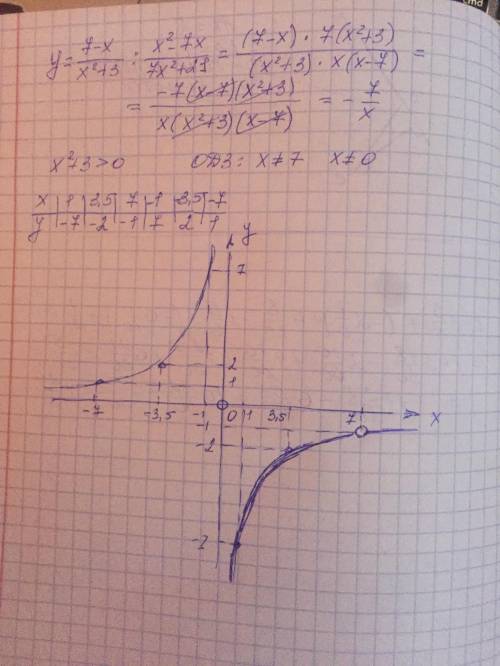 y = (7-x)/(x²+3) : (x²-7x)/(7x²+21) = ((7-x) · 7(x²+3))/((x²+3) · x(x-7)) =
= (-7(x-7)(x²+3))/(x(x²+3)(x-7)) = - 7/x
x²+3>0 ОДЗ: x≠7 x≠0
x | 1 | 3,5 | 7 | -1 | 3,5 | -7
y | -7 | -2 | -1 | 7 | 2 | 1
y
7
2
1
-7 -3,5 -1 0 1 3,5 7 x
-1
-2